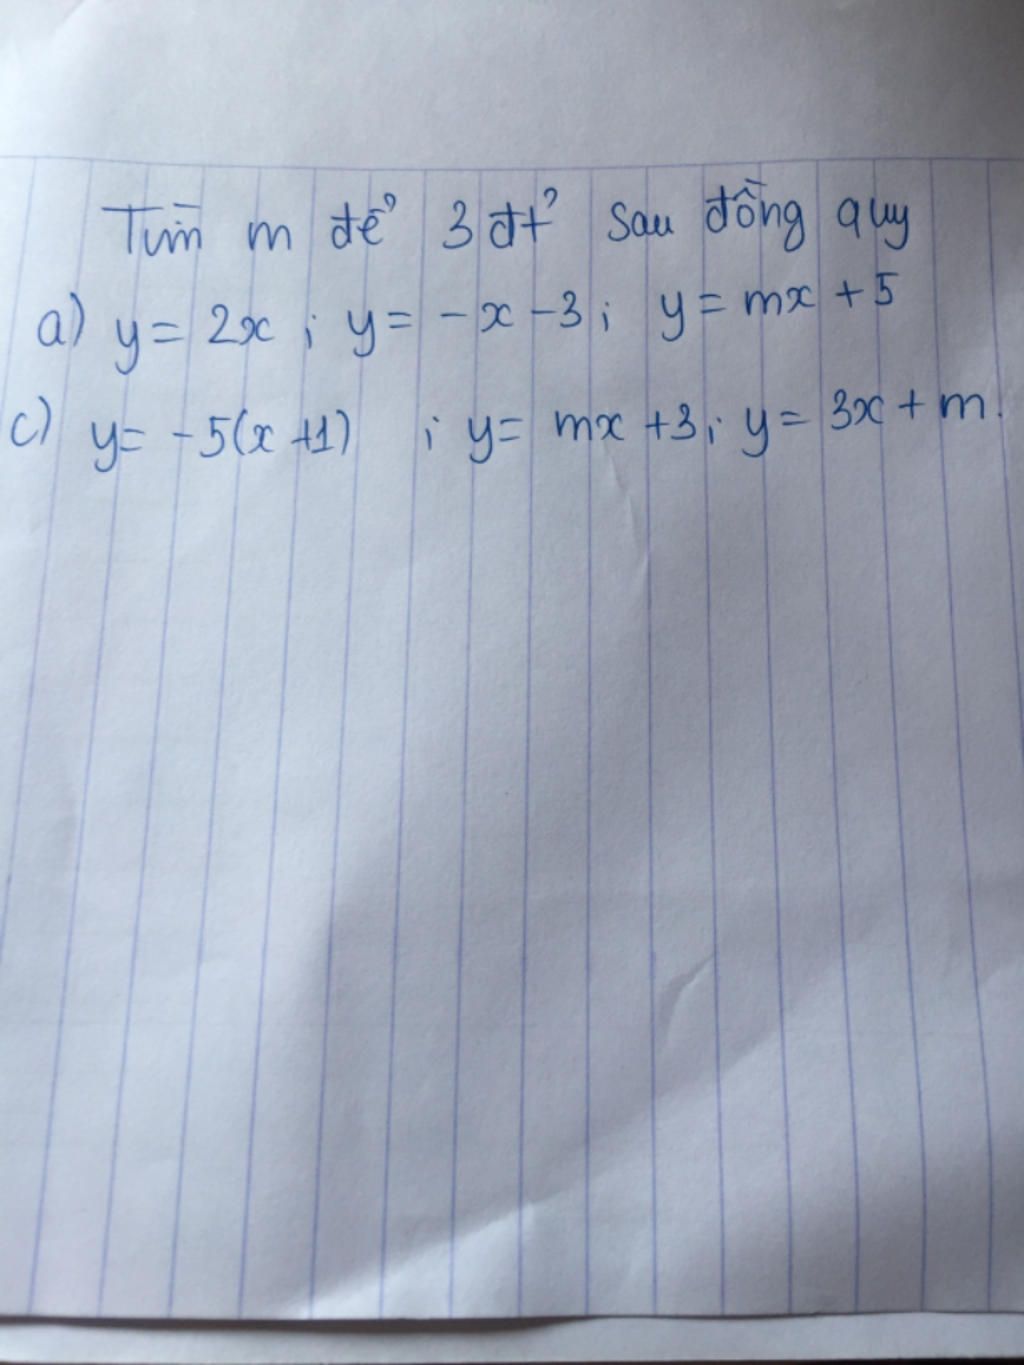 Tìm m để 3 đt² sau đồng quy
a) y = 2x ; y = -x -3 ; y = mx + 5
c) y = -5(x +1) ; y = mx +3 ; y = 3x + m.